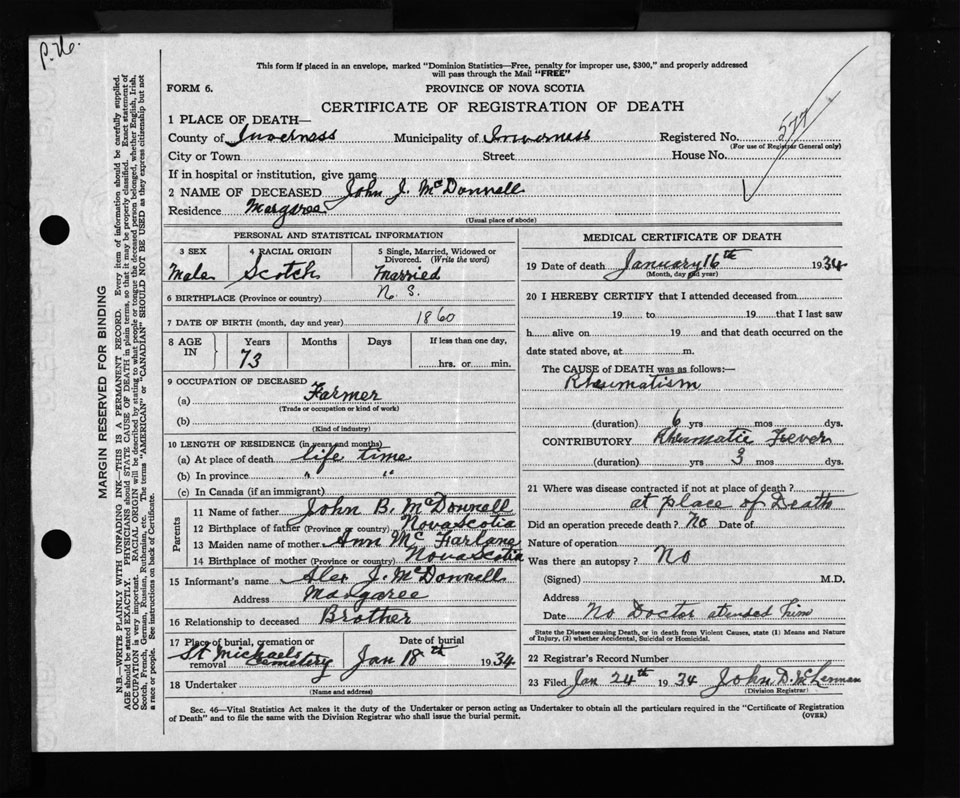 P. 26.
This form if placed in an envelope, marked "Dominion Statistics—Free, penalty for improper use, $300," and properly addressed
will pass through the Mail "FREE"
FORM 6.
PROVINCE OF NOVA SCOTIA
CERTIFICATE OF REGISTRATION OF DEATH
1 PLACE OF DEATH—
County of Inverness Municipality of Inverness Registered No. 577
(For use of Registrar General only)
City or Town Street House No.
If in hospital or institution, give name
2 NAME OF DECEASED John J. McDonnell
Residence Margaree
(Usual place of abode)
PERSONAL AND STATISTICAL INFORMATION
3 SEX 4 RACIAL ORIGIN 5 Single, Married, Widowed or
Divorced. (Write the word)
Male Scotch Married
6 BIRTHPLACE (Province or country) N. S.
7 DATE OF BIRTH (month, day and year) 1860
8 AGE IN Years Months Days If less than one day,
73 hrs. or min.
9 OCCUPATION OF DECEASED
(a) Farmer
(Trade or occupation or kind of work)
(b)
(Kind of industry)
10 LENGTH OF RESIDENCE (in years and months)
(a) At place of death life time
(b) In province " "
(c) In Canada (if an immigrant)
Parents
11 Name of father John B. McDonnell
12 Birthplace of father (Province or country) Nova Scotia
13 Maiden name of mother Ann McFarlane
14 Birthplace of mother (Province or country) Nova Scotia
15 Informant's name Alex J. McDonnell
Address Margaree
16 Relationship to deceased Brother
17 Place of burial, cremation or removal St Michaels Cemetery
Date of burial Jan 18th 1934
18 Undertaker
(Name and address)
MEDICAL CERTIFICATE OF DEATH
19 Date of death January 16th 1934
(Month, day and year)
20 I HEREBY CERTIFY that I attended deceased from
19 to 19 that I last saw
h alive on 19 and that death occurred on the
date stated above, at m.
The CAUSE of DEATH was as follows:—
Rheumatism
(duration) 6 yrs mos dys.
CONTRIBUTORY Rhumatic Fever
(duration) yrs 3 mos dys.
21 Where was disease contracted if not at place of death?
at place of Death
Did an operation precede death? No Date of
Nature of operation
Was there an autopsy? No
(Signed) M.D.
Address
Date No Doctor atended him
State the Disease causing Death, or in death from Violent Causes, state (1) Means and Nature
of Injury, (2) whether Accidental, Suicidal or Homicidal.
22 Registrar's Record Number
23 Filed Jan 24th 1934 John D. McLennan
(Division Registrar)
Sec. 46—Vital Statistics Act makes it the duty of the Undertaker or person acting as Undertaker to obtain all the particulars required in the "Certificate of Registration
of Death" and to file the same with the Division Registrar who shall issue the burial permit.
(OVER)
MARGIN RESERVED FOR BINDING
N.B.—WRITE PLAINLY WITH UNFADING INK—THIS IS A PERMANENT RECORD. Every item of information should be carefully supplied.
AGE should be stated EXACTLY. PHYSICIANS should STATE CAUSE OF DEATH in plain terms, so that it may be properly classified. Exact statement of
OCCUPATION is very important. RACIAL ORIGIN will be described by stating to what people or tongue the deceased person belonged, whether English, Irish,
Scotch, French, German, Russian, Ruthenian, etc. The terms "AMERICAN" or "CANADIAN" SHOULD NOT BE USED as they express citizenship but not
a race or people. See instructions on back of Certificate.